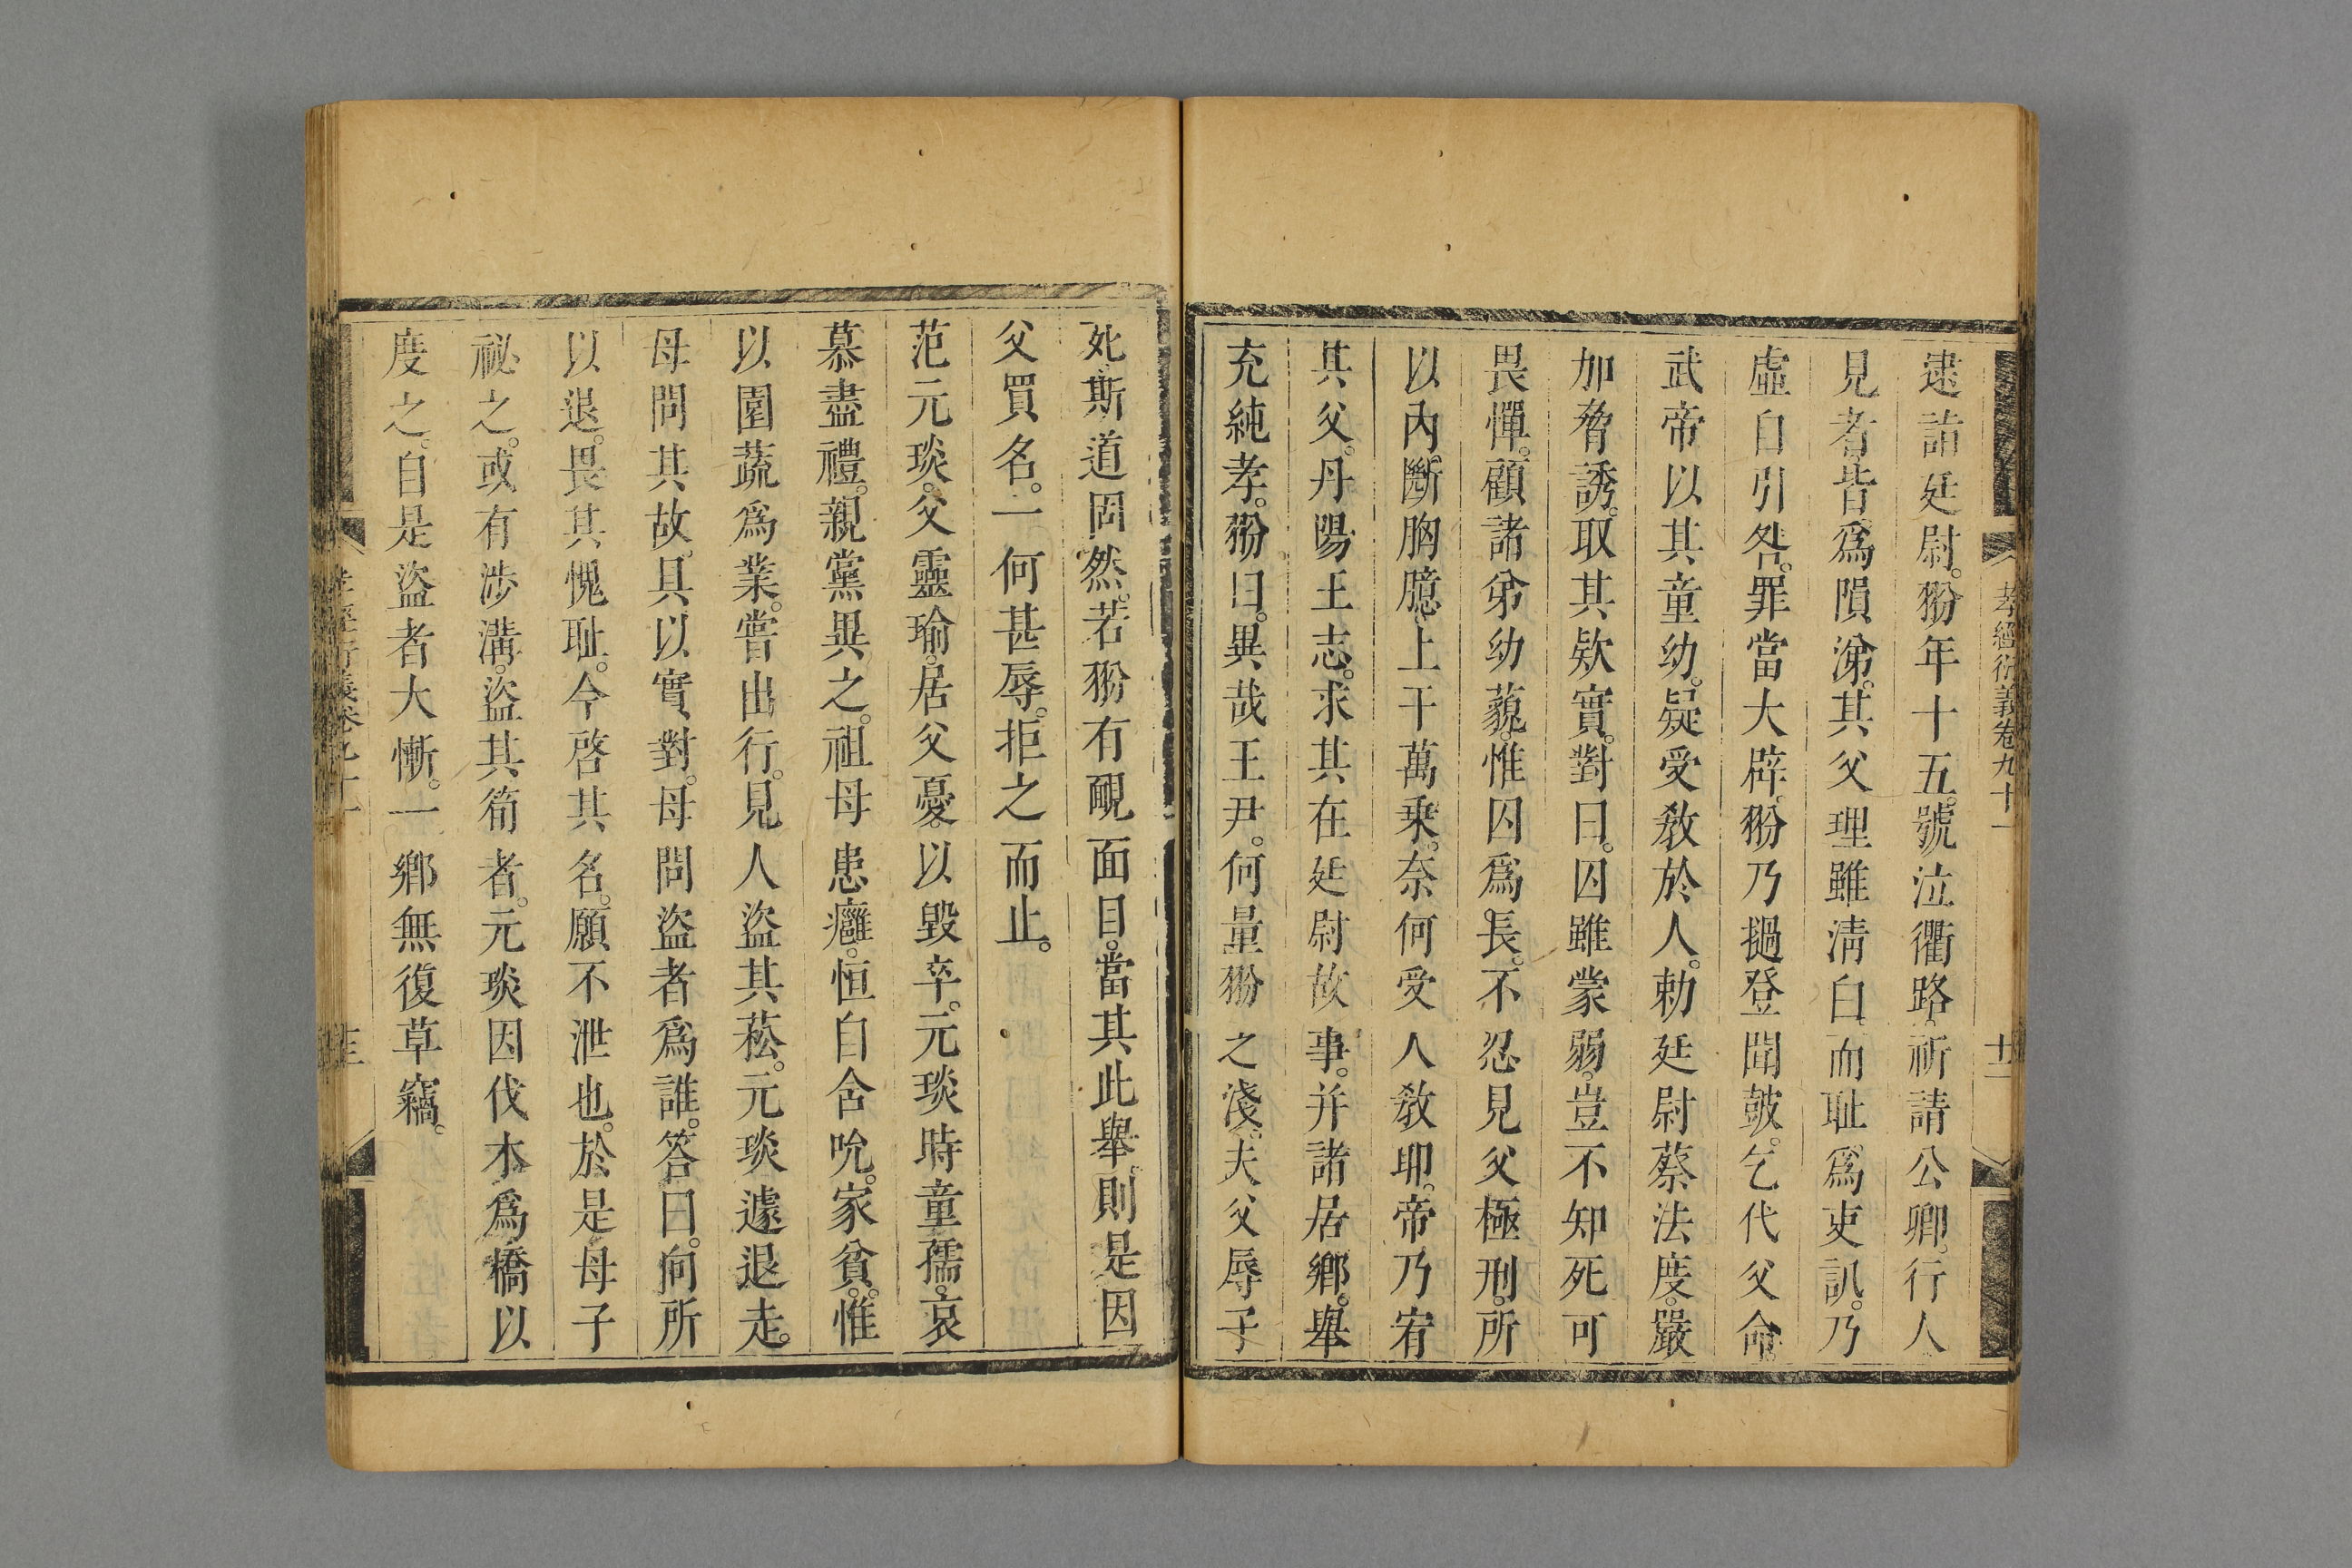 孝經衍義卷九十一
十二
逮詣廷尉。翂年十五。號泣衢路。祈請公卿。行人
見者。皆爲隕涕。其父理雖淸白。而耻爲吏訊。乃
虛自引咎。罪當大辟。翂乃撾登聞鼓。乞代父命。
武帝以其童幼。疑受敎於人。勅廷尉蔡法度。嚴
加脅誘。取其款實。對曰。囚雖蒙弱。豈不知死可
畏憚。顧諸弟幼藐。惟囚爲長。不忍見父極刑。所
以內斷胸臆。上干萬乗。奈何受人敎耶。帝乃宥
其父。丹陽王志。求其在廷尉故事。并諸居鄉。舉
充純孝。翂曰。異哉王尹。何量翂之淺。夫父辱子
死。斯道固然。若翂有靦面目。當其此舉。則是因
父買名。一何甚辱。拒之而止。
范元琰。父靈瑜。居父憂。以毀卒。元琰時童孺。哀
慕盡禮。親黨異之。祖母患癰。恒自含吮。家貧。惟
以園蔬爲業。嘗出行。見人盜其菘。元琰遽退走。
母問其故。具以實對。母問盜者爲誰。答曰。向所
以退。畏其愧耻。今啓其名。願不泄也。於是母子
祕之。或有涉溝。盜其筍者。元琰因伐木爲橋以
度之。自是盜者大慚。一鄉無復草竊。
孝經衍義卷九十一